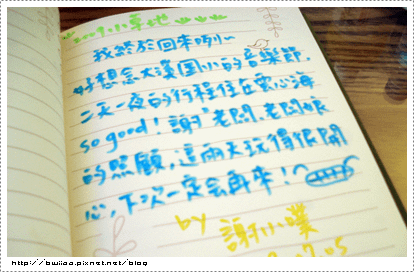 2009.小草地
我終於回來咧~
好想念大溪國小的音樂節.
二天一夜的行程住在雲心海
so good! 謝"老闆.老闆娘
的照顧,這兩天玩得很開
心,下次一定会再來!
by 謝小噗
05
http://bwjiaa.pixnet.net/blog